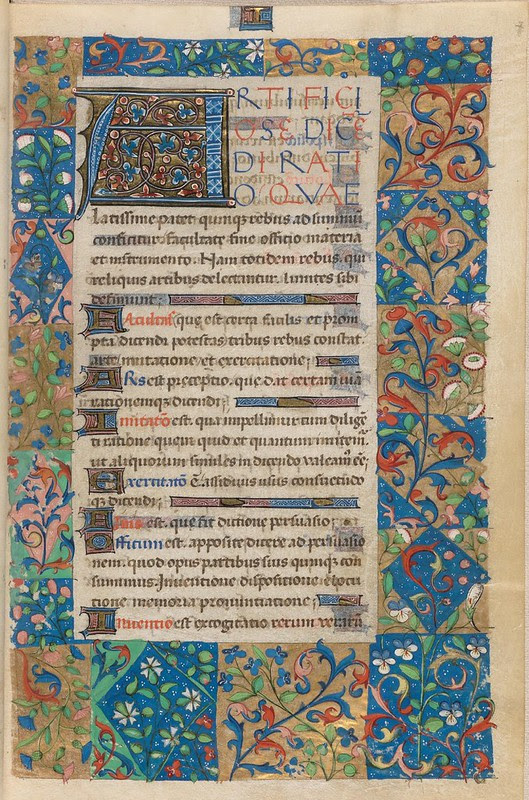 ARTIFICI
OSE DICE
DI RATI
O QVAE
latissime patet quinqȝ rebus ad summum
conficitur: facultate fine officio materia
et instrumento. Nam totidem rebus qui
reliquis artibus delectantur limites sibi
definiunt:
Facultas que est certa facilis et prom
pta dicendi potestas tribus rebus constat.
arte imitatione et exercitatione:
ARs est preceptio. que dat certam viā
rationemqȝ dicendi:
Imitatio est. qua impellimur cum diligēti
ti ratione quem quid et quantum imitem̄.
ut aliquorum similes in dicendo valeam̄ eē:
Exercitatio ē. assiduus usus consuetudo
qȝ dicendi:
Finis est. que fit dictione persuasio:
Officium est. apposite dicere ad persuasio
nem. quod opus partibus suis quinqȝ con
summus. Inuentione dispositione elocu
tione memoria pronuntiatione:
Inuentio est excogitatio rerum verarū